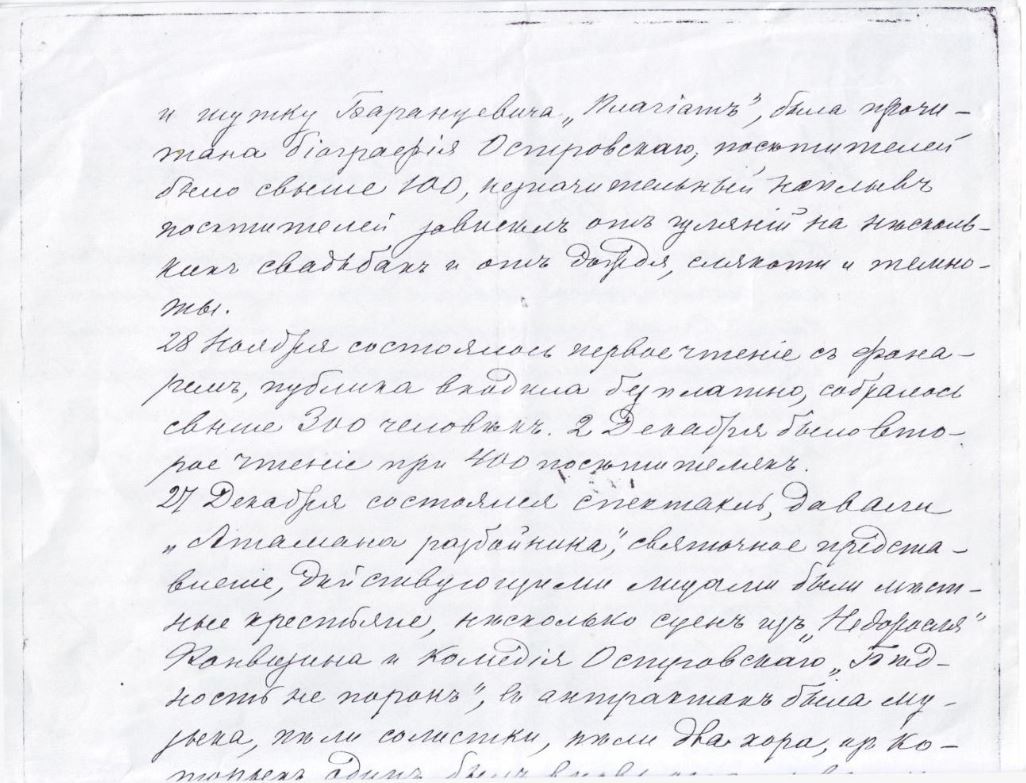 и шутку Баранцевича „Плагіатъ", была прочи-
тана біографія Островскаго, посѣтителей
было свыше 100, незначительный наплывъ
посѣтителей зависѣлъ отъ гуляній на нѣсколь-
кихъ свадьбахъ и отъ дождя, слякоти и темно-
ты.
28 Ноября состоялось первое чтеніе съ фона-
ремъ, публика входила безплатно, собралось
свыше 300 человѣкъ. 2 Декабря было вто-
рое чтеніе при 400 посѣтителяхъ.
27 Декабря состоялся спектакль, давали
„Атамана разбойника", святочное предста-
вленіе, дѣйствующими лицами были мѣст-
ные крестьяне, нѣсколько сценъ изъ „Недоросля"
Фонвизина и комедія Островскаго „Бѣд-
ность не порокъ", въ антрактахъ была му-
зыка, пѣли солистки, пѣли два хора, изъ ко-
торыхъ одинъ былъ